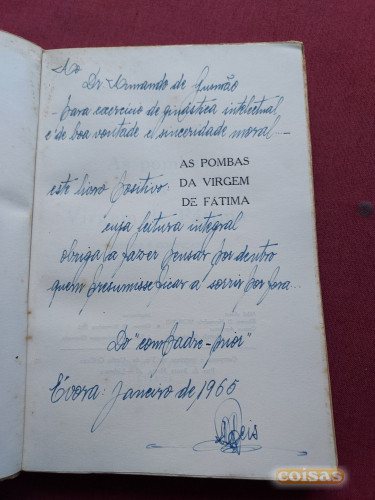 Ao
Dr. Armando de Gusmão
- para exercício de ginástica intelectual
e de boa vontade e sinceridade moral -
AS POMBAS
este livro positivo: DA VIRGEM
DE FÁTIMA
cuja leitura integral
obriga a fazer pensar por dentro
quem presumisse ficar a sorrir por fora...
Do "compadre-prior"
Évora: Janeiro de 1965
Reis
coisas